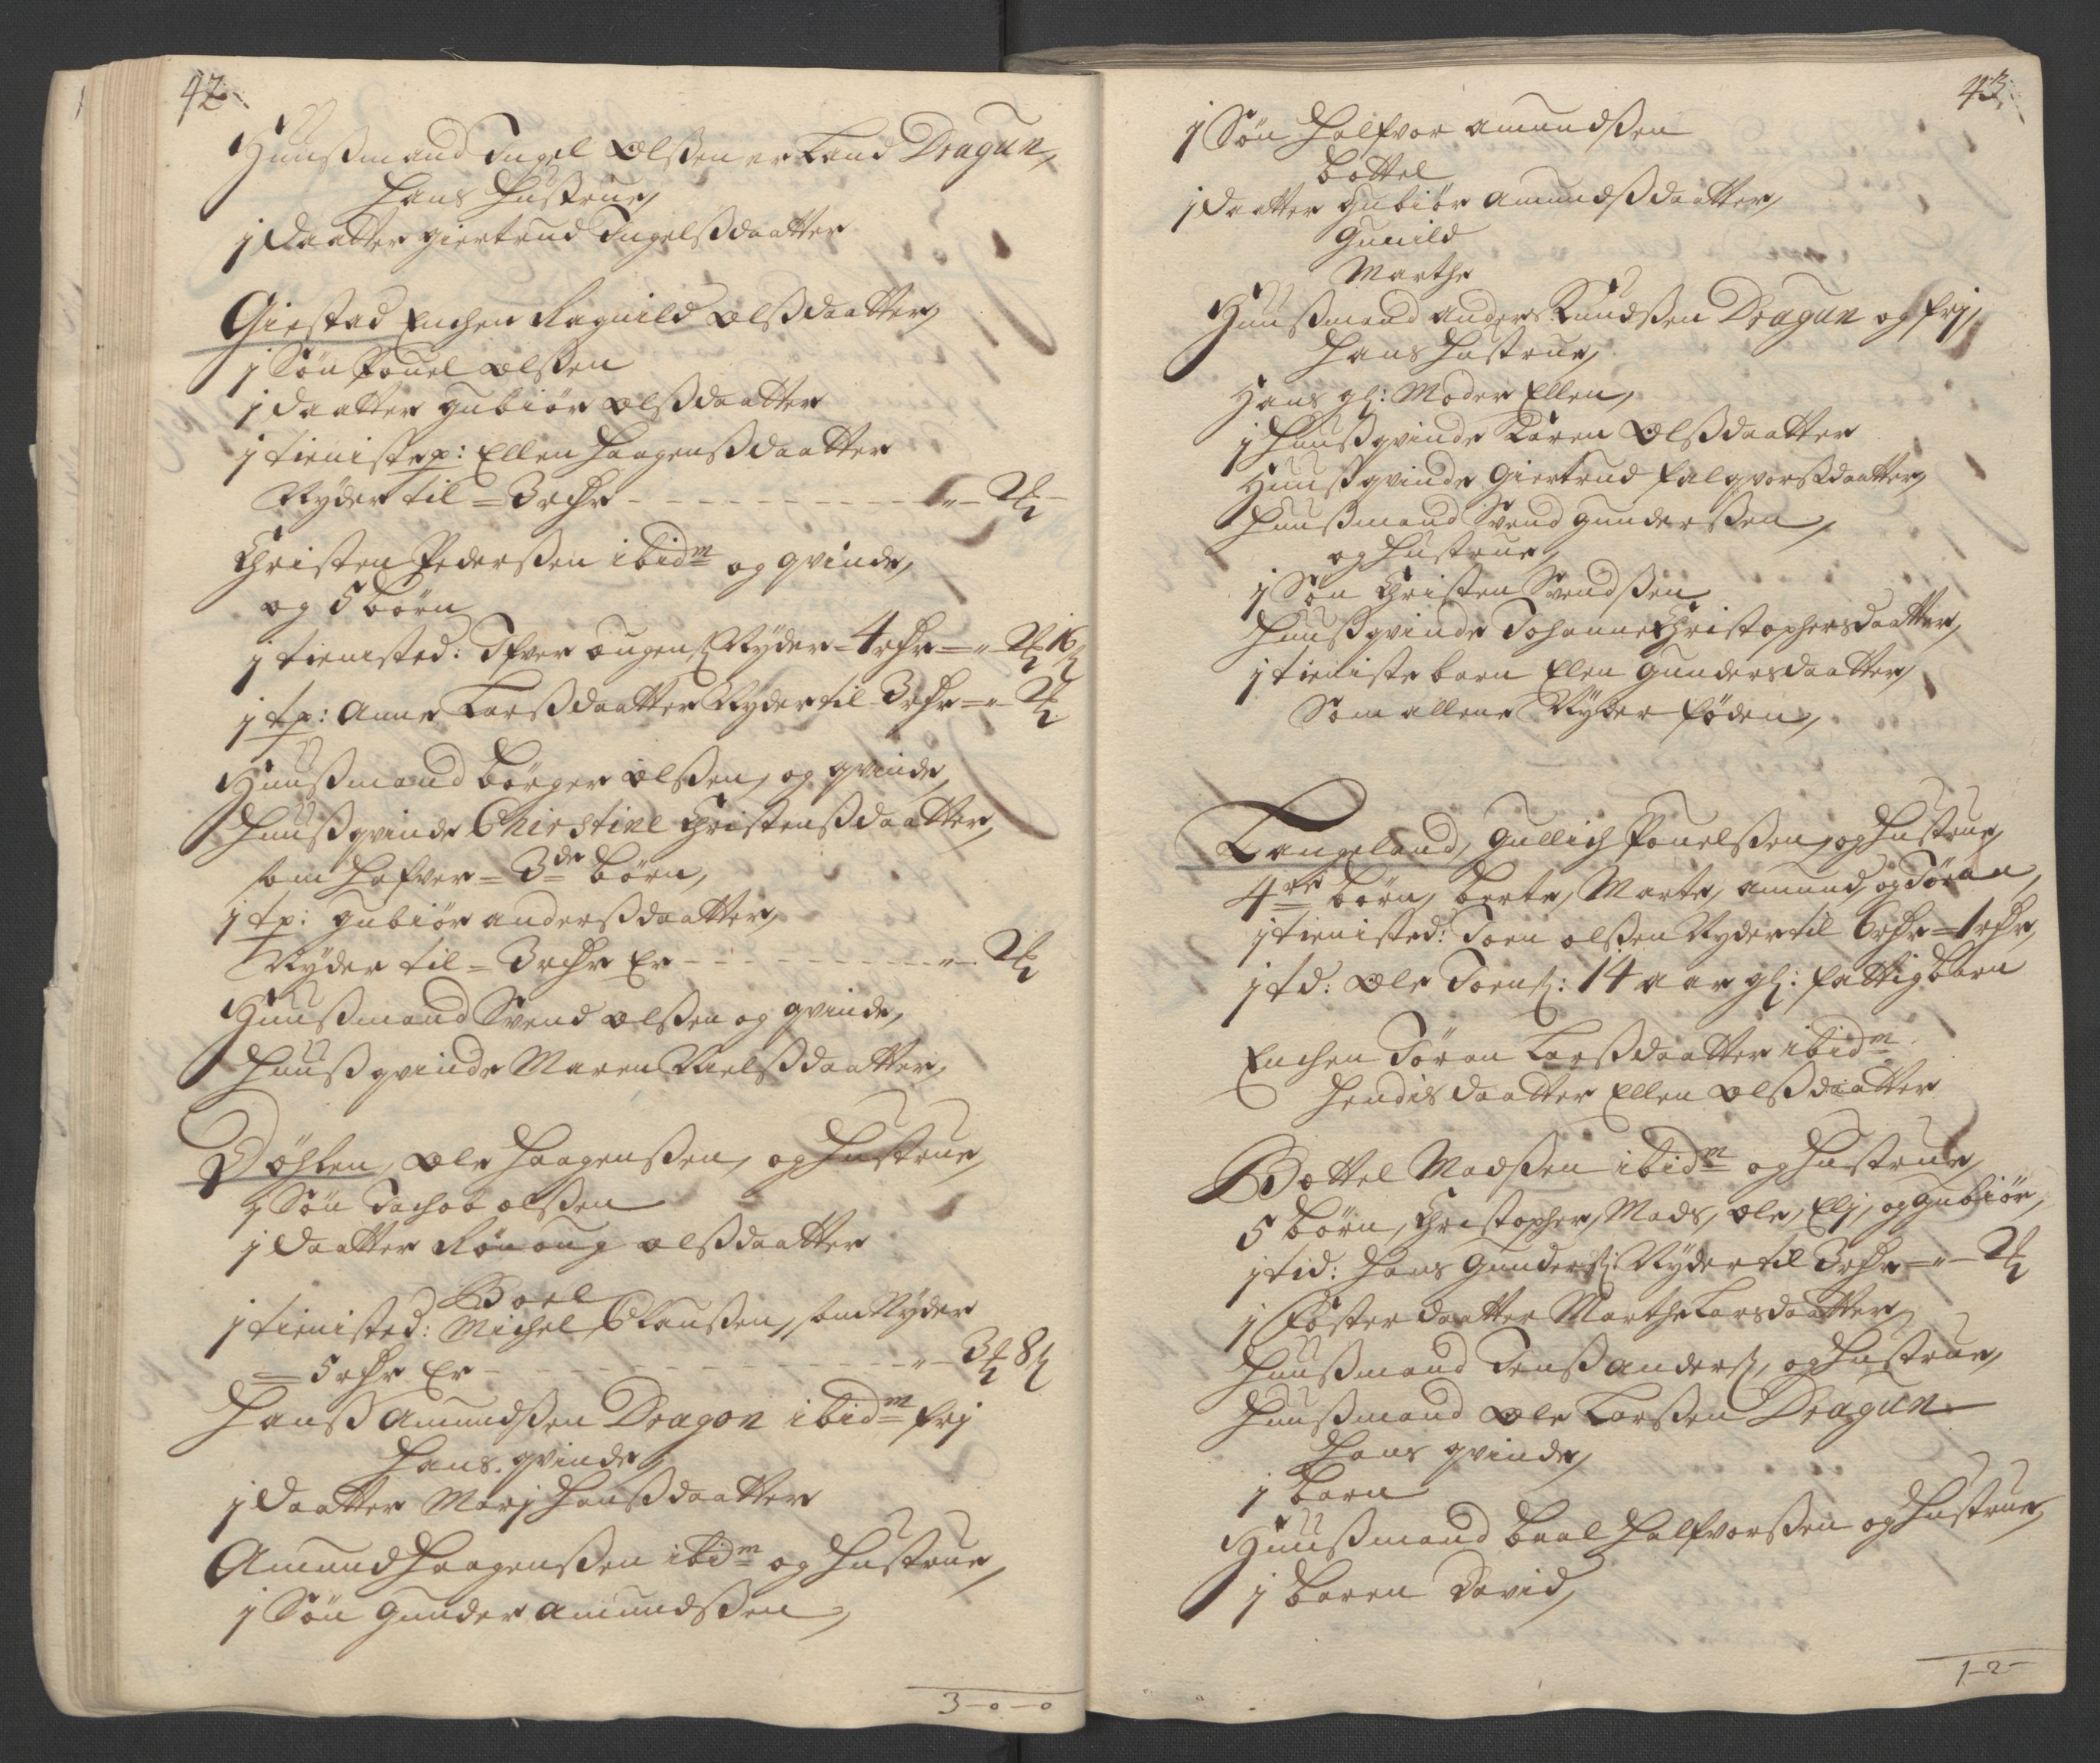 42.
Huußmand Ingel Olßen er Land Dragun,
Hans Hustrue,
1 Daatter Giertrud Ingelßdaatter
Giestad Enchen Ragnild Olßdaatter,
1 Søn Pouel Olßen
1 Daatter Gubiør Olßdaatter
1 tienistep: Ellen Haagenßdaatter
Nyder til = 3 rdr - - - - " - 2 ₰
Christen Pederßen ibidm og qvinde,
og 5 børn
1 tienisted: Ifver Augenß: Nyder = 4 rdr = " - 2 ₰ 16 ß
1 tp: Anne Larßdaatter Nyder til 3 rdr = " - 2 ₰
Huußmand Børger Olßen, og qvinde,
Huußqvinde Chirstine Christenßdaatter,
som hafver = 3de børn,
1 tp: Gubiør Anderßdaatter,
Nyder til = 3 rdr Er - - - - " - 2 ₰
Huußmand Svend Olßen og qvinde,
Huußqvinde Maren Nielßdaatter,
Döhlen, Ole Haagenßen, og Hustrue,
1 Søn Jachob Olßen
1 Daatter Rönoug Olßdaatter
Boel
1 tienisted: Michel Clausßen, som Nyder
= 5 rdr Er - - - - " - 3 ₰ 8 ß
Hanß Amundßen Dragon ibidm frj
Hans qvinde,
1 Daatter Marj Hanßdaatter
Amund Haagenßen ibidm og Hustrue,
1 Søn Gunder Amundßen,
3 - 0 - 0
43.
1 Søn Halfvor Amundßen
Bottel
1 Daatter Gubiør Amundßdaatter,
Gunild
Marthe
Huußmand Anders Knudßen Dragun og frj,
Hans Hustrue,
Hans gl: Moder Ellen,
1 Huußqvinde Karen Olßdaatter
Huußqvinde Giertrud Falqvorßdaatter,
Huußmand Svend Gunderßen,
og Hustrue,
1 Søn Christen Svendßen
Huußqvinde Johanne Christophersdaatter,
1 tieniste barn Elen Gundersdaatter,
Som allene Nyder føden,
Langeland, Gullich Pouelßen, og Hustrue,
4re børn, Berte, Marte, Amund, og Jöran,
1 tienisted: Joen Olßen Nyder til 6 rdr = 1 rdr,
1 td: Ole Joenß: 14 aar gl: fattig barn
Enchen Jöran Larßdaatter ibidm
Hendis Daatter Ellen Olßdaatter
Bottel Madßen ibidm og Hustrue,
5 børn, Christopher, Mads, Ole, Elj, og Gubiör,
1 tid: Hans Gunderß: Nyder til 3 rdr = " - 2 ₰
1 Foster daatter Marthe Larsdaatter,
Huußmand Jenß Anderß, og Hustrue,
Huußmand Ole Larßen Dragun
Hans qvinde,
1 barn
Huußmand Baal Halfvorßen og Hustrue,
1 baren David,
1 - 2 -